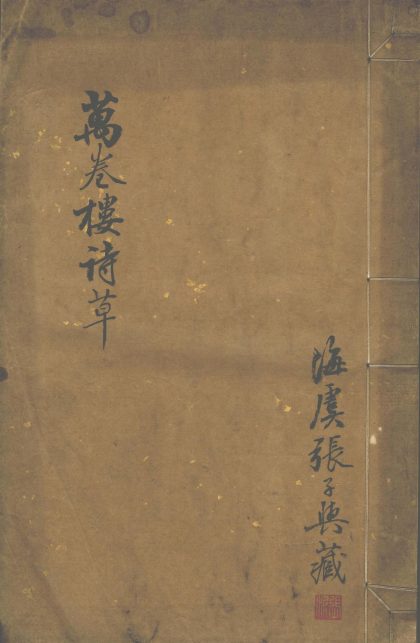 萬卷樓诗草
海虞張子興藏